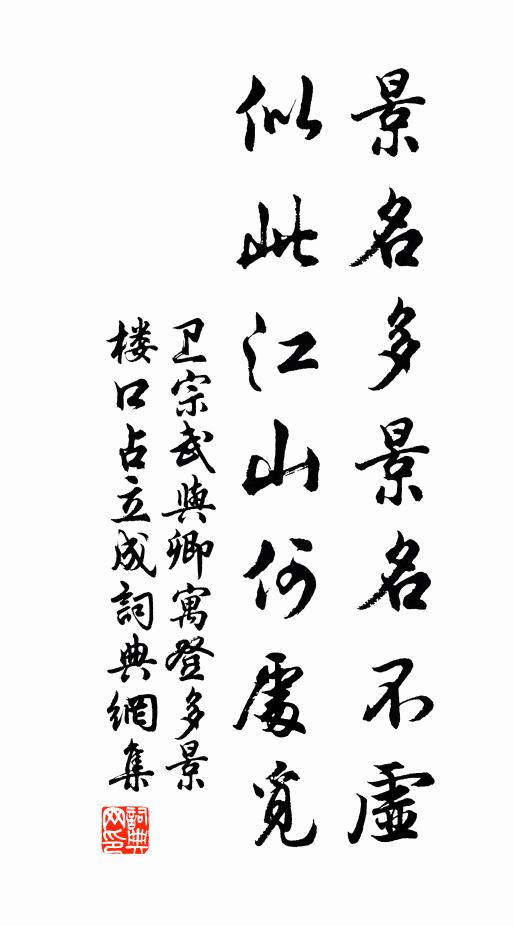 景名多景名不虛
似此江山何處覓
卫宗武與卿寓登多景
楼口占立成詞典網集
詞典
网印